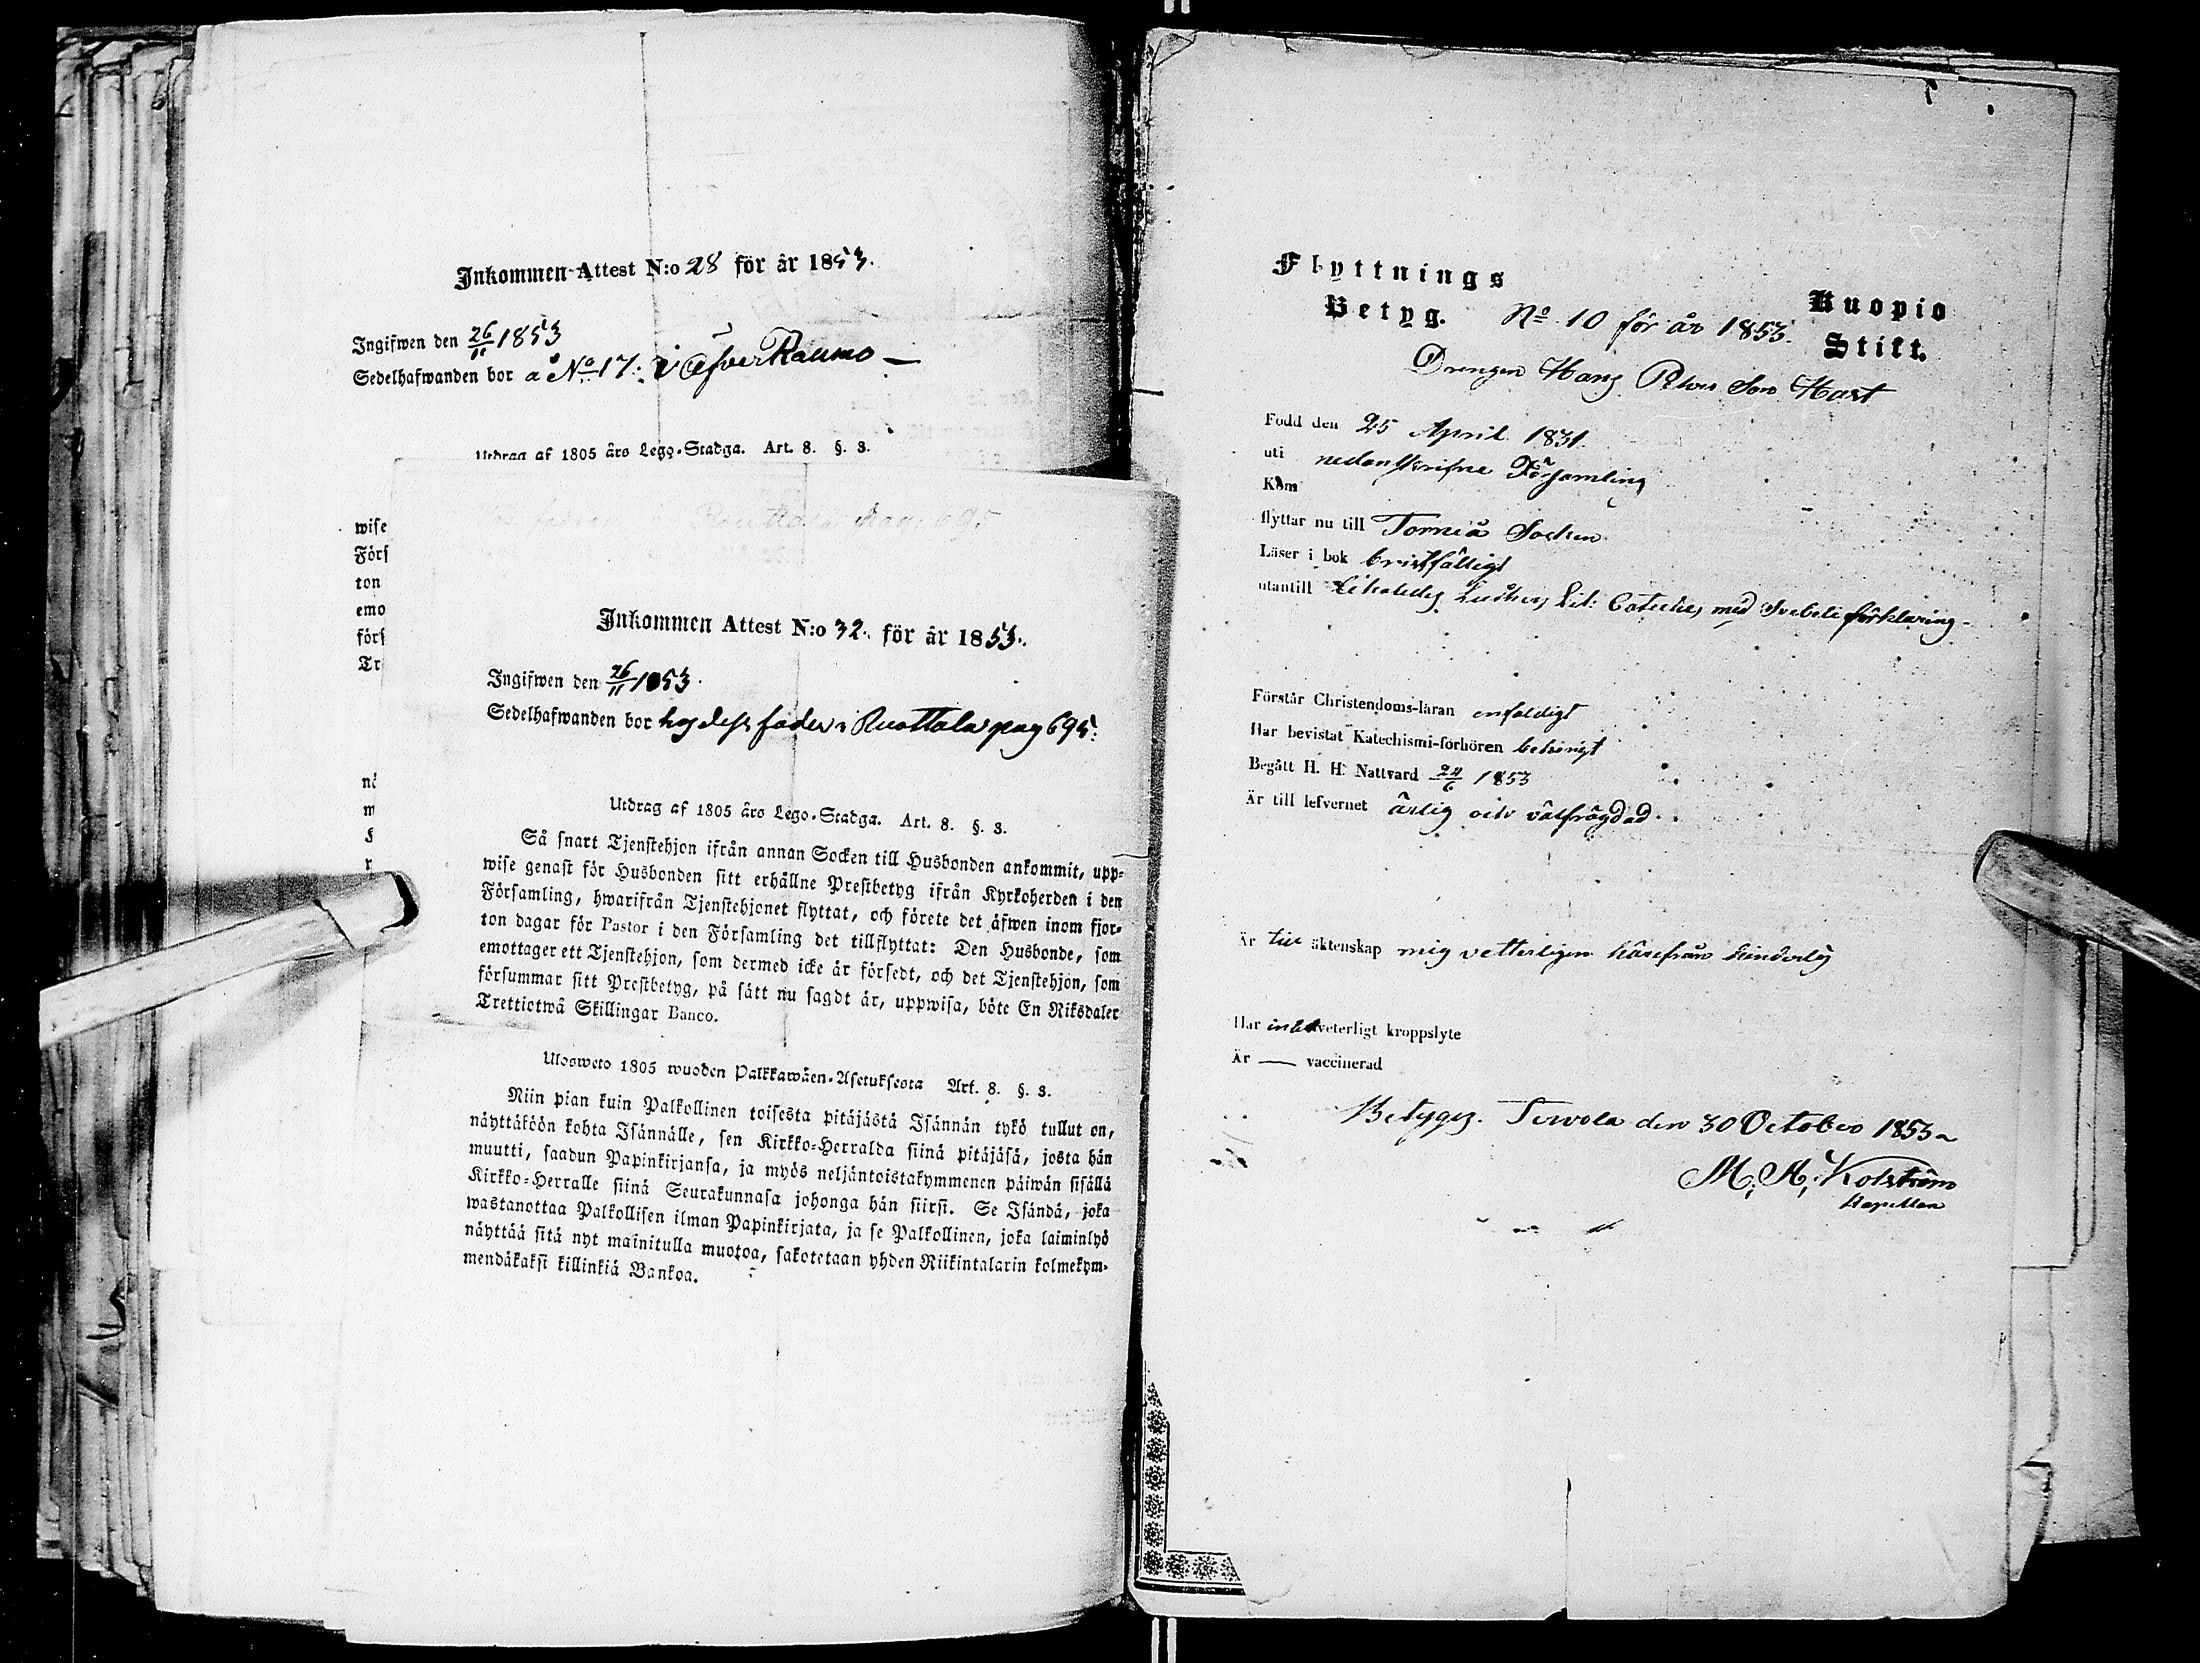 Inkommen Attest N:o 28 för år 1853.
Ingifwen den 26/11 1853
Sedelhafwanden bor å No 17. i Öfver Raumo
Utdrag af 1805 års Lego-Stadga. Art. 8. §. 3.
wise
Förs
ton
emo
förs
Tr
Inkommen Attest N:o 32. för år 1853.
Ingifwen den 26/11 1853.
Sedelhafwanden bor hos dess fader i Ruottala pag 695.
Utdrag af 1805 års Lego-Stadga. Art. 8. §. 3.
Så snart Tjenstehjon ifrån annan Socken till Husbonden ankommit, upp-
wise genast för Husbonden sitt erhållne Prestbetyg ifrån Kyrkoherden i den
Församling, hwarifrån Tjenstehjonet flyttat, och förete det äfwen inom fjor-
ton dagar för Pastor i den Församling det tillflyttat: Den Husbonde, som
emottager ett Tjenstehjon, som dermed icke är försedt, och det Tjenstehjon, som
försummar sitt Prestbetyg, på sätt nu sagdt är, uppwisa, böte En Riksdaler
Trettiotwå Skillingar Banco.
Ulosweto 1805 wuoden Palkkawäen-Asetuksesta Art. 8. §. 3.
Niin pian kuin Palkollinen toisesta pitäjästä Isännän tykö tullut on,
näyttäköön kohta Isännälle, sen Kirkko-Herralda siinä pitäjäsä, josta hän
muutti, saadun Papinkirjansa, ja myös neljäntoistakymmenen päiwän sisällä
Kirkko-Herralle siinä Seurakunnasa johonga hän siirsi. Se Isändä, joka
wastanottaa Palkollisen ilman Papinkirjata, ja se Palkollinen, joka laiminlyö
näyttää sitä nyt mainitulla muotoa, sakotetaan yhden Riikintalarin kolmekym-
mendäkaksi killinkiä Bankoa.
Flyttnings
Betyg. No 10 för år 1853.
Kuopio
Stift.
Drengen Hans Petter Son Hast
Född den 25 April 1831.
uti nedanskrifne Församling
Kom
flyttar nu till Torneå Socken
Läser i bok bristfälligt
utantill Lutheri Lil: Cateches med Svebelii förklaring.
Förstår Christendoms-läran enfaldigt
Har bevistat Katechismi-förhören behörigt
Begått H. H. Nattvard 24/6 1853
Är till lefvernet ärlig och välfrägdad.
Är till äktenskap mig vetterligen härifrån hinderlös
Har intet veterligt kroppslyte
Är — vaccinerad
Betygas. Tervola den 30 October 1853
M. A. Kolström
Kapellan